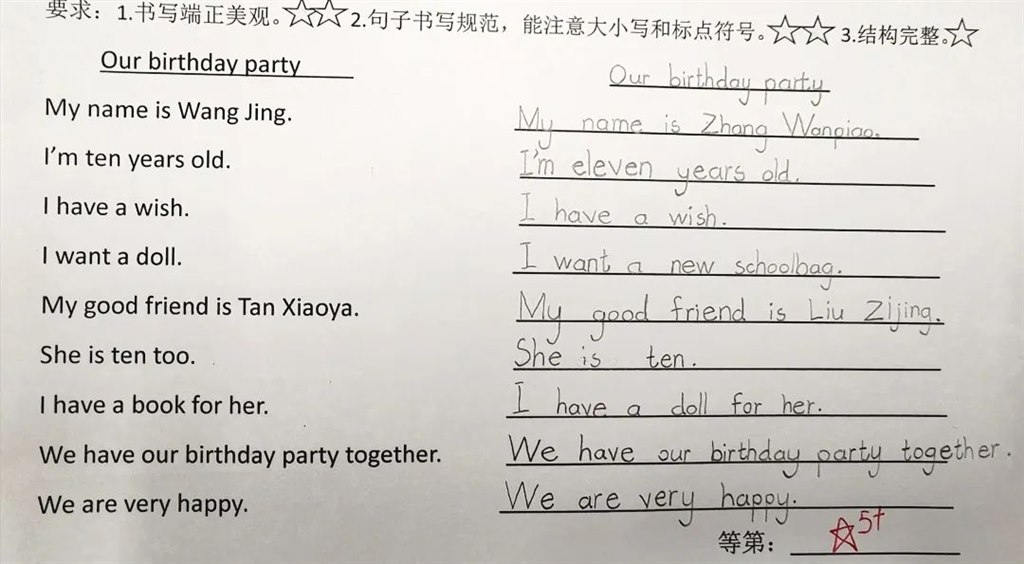 要求：1.书写端正美观。☆☆ 2.句子书写规范，能注意大小写和标点符号。☆☆ 3.结构完整。☆
Our birthday party
My name is Wang Jing.
I'm ten years old.
I have a wish.
I want a doll.
My good friend is Tan Xiaoya.
She is ten too.
I have a book for her.
We have our birthday party together.
We are very happy.
Our birthday party
My name is Zhang Wanqiao.
I'm eleven years old.
I have a wish.
I want a new schoolbag.
My good friend is Liu Zijing.
She is ten.
I have a doll for her.
We have our birthday party together.
We are very happy.
等第：☆5+